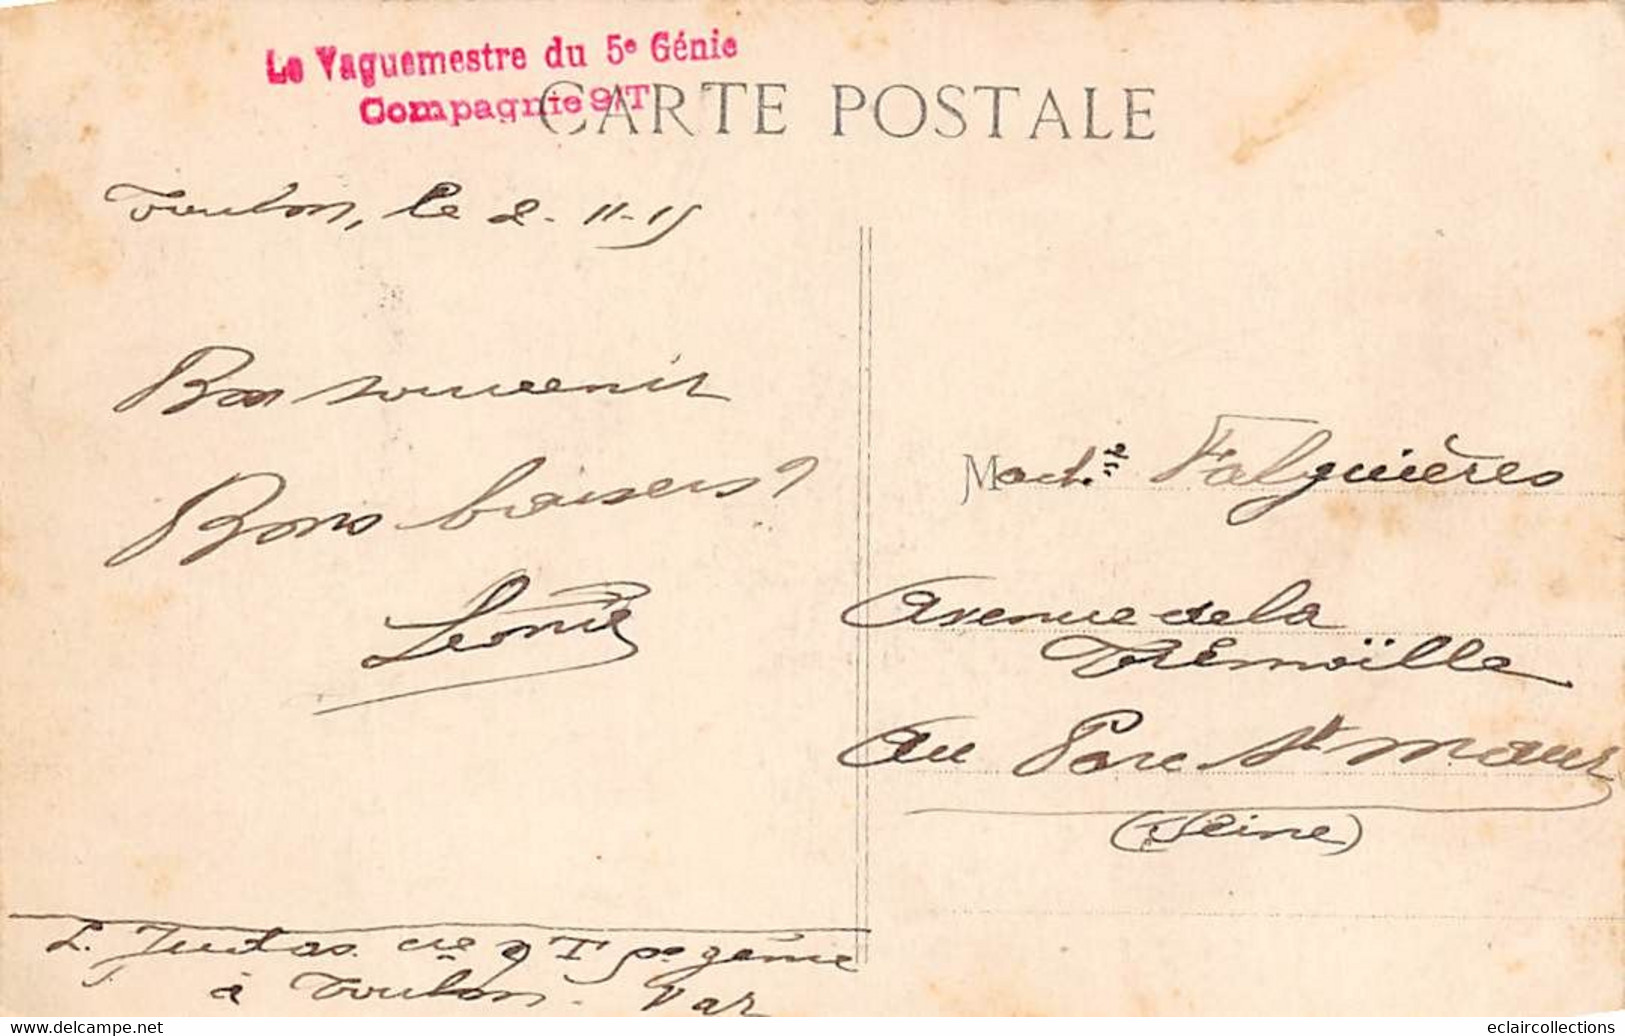 Le Vaguemestre du 5e Génie
Compagnie 9/T
CARTE POSTALE
Toulon, le 2-11-15
Bon souvenir
Bons baisers
Léonie
Falguières
Avenue de la
Trémoïlle
Au Parc St Maur
(Seine)
L. Judas. Cie 9 T 5e génie
à Toulon. Var
eclaircollections